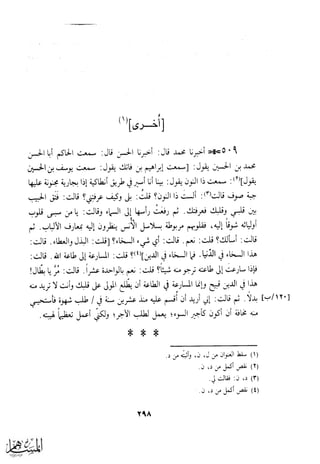 [أخرى](١)
٥٠٩- أخبرنا محمد قال: أخبرنا الحسن قال: سمعت الحاكم أبا الحسن
محمد بن الحسين يقول: [سمعت إبراهيم بن فاتك يقول: سمعت يوسف بن الحسين
يقول](٢): سمعت ذا النون يقول: بينا أنا أسير في طريق أنطاكية إذا بجارية مجنونة عليها
جبة صوف فقالت(٣): ألست ذا النون؟ قلت: بلى وكيف عرفتني؟ قالت: فتق الحبيب
بين قلبي وقلبك فعرفتك. ثم رفعت رأسها إلى السماء وقالت: يا من سبى قلوب
أوليائه شوقاً إليه، فقلوبهم مربوطة بسلاسل الأنس ينظرون إليه بمعارف الألباب. ثم
قالت: أسألك؟ قلت: نعم. قالت: أي شيء السخاء؟ [قلت: البذل والعطاء. قالت:
هذا السخاء في الدنيا. فما السخاء في الدين](٤)؟ قلت: المسارعة إلى طاعة الله. قالت:
فإذا سارعت إلى طاعته ترجو منه شيئا؟ قلت: نعم بالواحدة عشراً. قالت: مر يا بطال!
هذا في الدين قبيح وإنما المسارعة في الطاعة أن يطلع المولى على قلبك وأنت لا تريد منه
[١٢٠/ب] بدلاً. ثم قالت: إني أريد أن أقسم عليه منذ عشرين سنة في / طلب شهوة فأستحيي
منه مخافة أن أكون كأجير السوء؛ يعمل لطلب الأجر؛ ولكني أعمل تعظيماً لهيبته.
* * *
(١) سقط العنوان من ل، ن، وأثبته من د.
(٢) نقص أكمل من د، ن.
(٣) د، ن: فقالت لي.
(٤) نقص أكمل من د، ن.
٢٩٨